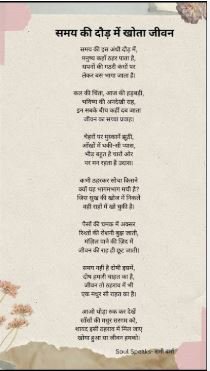 समय की दौड़ में खोता जीवन
समय की इस अंधी दौड़ में,
मनुष्य कहाँ ठहर पाता है,
सपनों की गठरी कंधों पर
लेकर बस भागा जाता है।
कल की चिंता, आज की हड़बड़ी,
भविष्य की अनदेखी राह,
इन सबके बीच कहीं दब जाता
जीवन का सच्चा प्रवाह।
चेहरों पर मुस्कानें झूठी,
आँखों में थकी-सी प्यास,
भीड़ बहुत है चारों ओर
पर मन रहता है उदास।
कभी ठहरकर सोचा किसने
क्यों यह भागमभाग मची है?
जिस सुख की खोज में निकले
वही राहों में खो चुकी है।
पैसों की चमक में अक्सर
रिश्तों की रोशनी बुझ जाती,
मंज़िल पाने की ज़िद में
जीवन की राह ही छूट जाती।
समय नहीं है दोषी इसमें,
दोष हमारी चाहत का है,
जीवन तो ठहराव में भी
एक मधुर सी राहत का है।
आओ थोड़ा रुक कर देखें
साँसों की मधुर सरगम को,
शायद इसी ठहराव में मिल जाए
खोया हुआ सा जीवन हमको।
Soul Speaks-